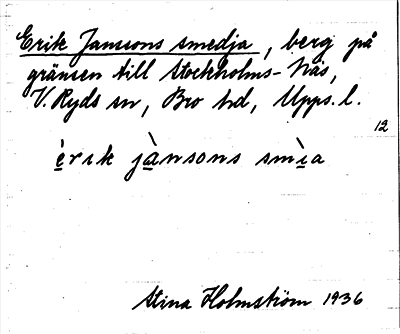 Erik Jansons smedja, berg på
gränsen till Stockholms-Näs,
V. Ryds sn, Bro hd, Upps. l.
12
è̤rɩk jà̤nsons smì̤a
Stina Holmström 1936